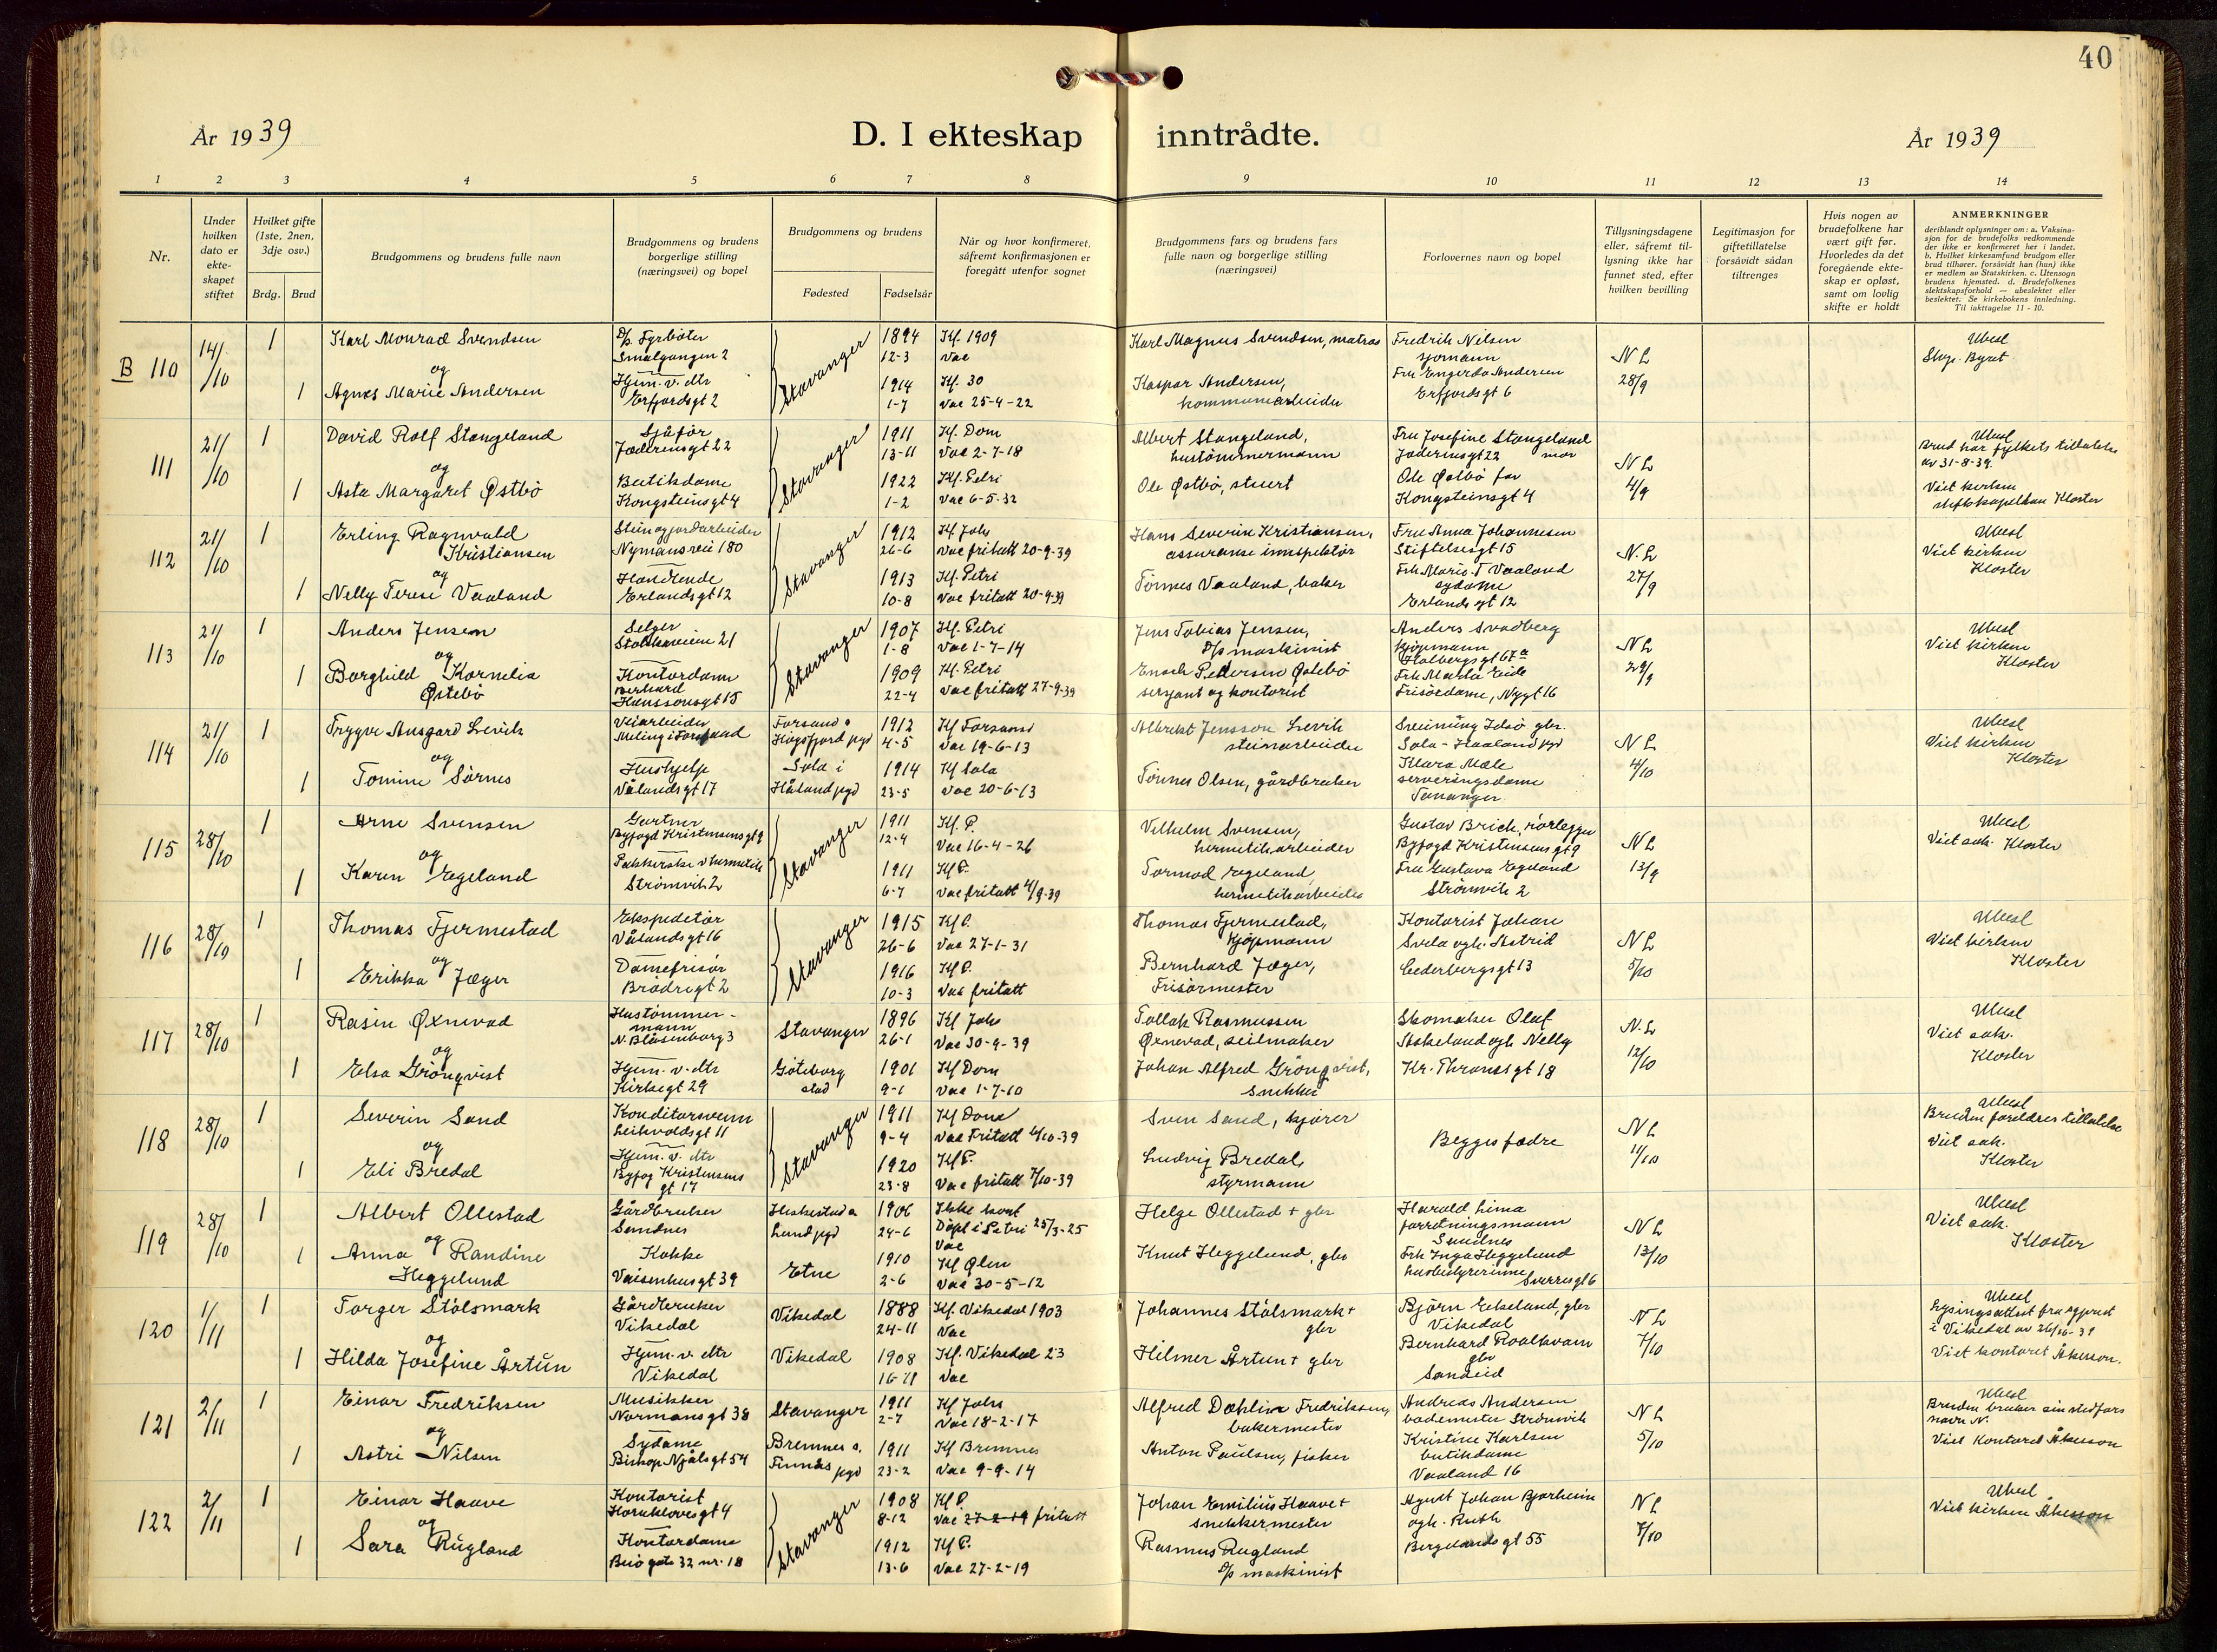 40
År 1939
D. I ekteskap inntrådte.
År 1939
1 2 3 4 5 6 7 8 9 10 11 12 13 14
Nr.
Under hvilken dato er ekte- skapet stiftet
Hvilket gifte (1ste, 2nen, 3dje osv.)
Brdg. Brud
Brudgommens og brudens fulle navn
Brudgommens og brudens borgerlige stilling (næringsvei) og bopel
Brudgommens og brudens
Fødested Fødselsår
Når og hvor konfirmeret, såfremt konfirmasjonen er foregått utenfor sognet
Brudgommens fars og brudens fars fulle navn og borgerlige stilling (næringsvei)
Forlovernes navn og bopel
Tillysningsdagene eller, såfremt til- lysning ikke har funnet sted, efter hvilken bevilling
Legitimasjon for giftetillatelse forsåvidt sådan tiltrenges
Hvis nogen av brudefolkene har vært gift før. Hvorledes da det foregående ekte- skap er opløst, samt om lovlig skifte er holdt
ANMERKNINGER
deriblandt oplysninger om: a. Vaksina- sjon for de brudefolks vedkommende der ikke er konfirmeret her i landet. b. Hvilket kirkesamfund brudgom eller brud tilhører, forsåvidt han (hun) ikke er medlem av Statskirken. c. Utensogn brudens hjemsted. d. Brudefolkenes slektskapsforhold — ubeslektet eller beslektet. Se kirkebokens innledning. Til iakttagelse 11 - 10.
B 110 14/10 1 Karl Monrad Svendsen D/p. Fyrbøter Smalgangen 2 Stavanger 1894 12-3 Kf. 1909 vac Karl Magnus Svendsen, matros Fredrik Nilsen sjømann NL 28/9 Ubesl Byret
og
1 Agnes Marie Andersen Hjem. v. dtr Erfjordsgt 2 1914 1-7 Kf. 30 Vac 25-4-22 Kaspar Andersen, kommunearbeider Andersen Erfjordsgt 6
111 21/10 1 David Rolf Stangeland Sjåfør Jæderensgt 22 Stavanger 1911 13-11 Kf. Dom Vac 2-7-18 Albert Stangeland, hustømmermann Fru Josefine Stangeland Jæderensgt 22 mor NL 4/9 Ubesl Brud har fylkets tillatelse av 31-8-39.
og
1 Asta Margaret Østbö Butikdame Kongsteinsgt 4 1922 1-2 Kf. Petri Vac 6-5-32 Ole Østbö, stuert Ole Østbö far Kongsteinsgt 4 Viet kirken stiftskapellan Kloster
112 21/10 1 Erling Ragnvald Kristiansen Stein og jordarbeider Nymansvei 180 Stavanger 1912 26-6 Kf Johs Vac fritatt 20-9-39 Hans Severin Kristiansen, assuranse innspektør Fru Anna Johannesen Stiftelsesgt 15 N.L 27/9 Ubesl Viet kirken Kloster
og
1 Nelly Terese Vaaland Handlende Erlandsgt 12 1913 10-8 Kf. Petri Vac fritatt 20-9-39 Tönnes Vaaland, baker Frk Marie T Vaaland sydame Erlands gt 12
113 21/10 1 Anders Jensen Selger Stokkaveien 21 Stavanger 1907 1-8 Kf. Petri Vac 1-7-14 Jens Tobias Jensen, D/p maskinist Anders Svadberg kjöpmann Holbergsgt 67a NL 29/9 Ubesl Viet kirken Kloster
og
1 Borghild Kornelia Østebö Kontordame Bernhard Hanssonsgt 15 1909 22-4 Kf. Petri Vac fritatt 27-9-39 Enoch Pedersen Østebö sersjant og kontorist Frk Marta Eide Frisördame, Nygt 16
114 21/10 1 Trygve Ansgard Levik Veiarbeider Meling i Forsand Forsand s Høgsfjord pgd 1912 4-5 Kf Forsand Vac 19-6-13 Albrekt Jensson Levik steinarbeider Sveinung Idsö gbr. Sola - Haaland pgd NL 4/10 Ubesl Viet kirken Kloster
og
1 Tomine Sörnes Hushjelp Vålandsgt 17 Sola i Håland pgd 1914 23-5 Kf Sola Vac 20-6-13 Tönnes Olsen, gårdbruker Klara Mæle serveringsdame Tananger
115 28/10 1 Arne Svensen Gartner Byfogd Kristensens gt 9 Stavanger 1911 12-4 Kf. P. Vac 16-4-26 Vilhelm Svensen, hermetikarbeider Gustav Brick, rörlegger Byfogd Kristensens gt 9 NL 13/9 Ubesl Viet sak. Kloster
og
1 Karen Egeland Pakkerske v hermetik Strömvik 2 1911 6-7 Kf P. Vac fritatt 4/9-39 Tormod Egeland, hermetikarbeider Fru Gustava Egeland Strömvik 2
116 28/10 1 Thomas Fjermestad Ekspeditör Vålandsgt 16 Stavanger 1915 26-6 Kf P. Vac 27-1-31 Thomas Fjermestad, Kjöpmann Kontorist Johan Svela ogh. Astrid Cederbergsgt 13 NL 5/10 Ubesl Viet kirken Kloster
og
1 Erikka Jæger Damefrisör Brødregt 2 1916 10-3 Kf P. Vac fritatt Bernhard Jæger, Frisörmester
117 28/10 1 Rasin Øxnevad Hustömmer- mann N. Blåsenborg 3 Stavanger 1896 26-1 Kf Johs Vac 30-9-39 Tollak Rasmussen Øxnevad, seilmaker Skomaker Olaf Askeland ogh Nelly Kr. Thranesgt 18 N.L 12/10 Ubesl Viet sak. Kloster
og
1 Elsa Grönqvist Hjem. v. dtr Kirkegt 29 Göteborg stad 1901 9-1 Kf Dom Vac 1-7-10 Johan Alfred Grönqvist, snekker
118 28/10 1 Severin Sand Konditorsvenn Leikvoldsgt 11 Stavanger 1911 9-4 Kf Dom Vac Fritatt 4/10-39 Sven Sand, kjörer Begges fædre NL 11/10 Ubesl Bruden foreldres tillatelse Viet sak. Kloster
og
1 Eli Bredal Hjem. v. dtr Byfog Kristensens gt 17 1920 23-8 Kf P. Vac fritatt 7/10-39 Ludvig Bredal, styrmann
119 28/10 1 Albert Ollestad Gårdbruker Sandnes Heskestad s Lund pgd 1906 24-6 Ikke konf Döpt i Petri 25/3-25 Vac Helge Ollestad + gbr Harald Lima forretningsmann Sandnes NL 13/10 Ubesl Viet sak. Kloster
og
1 Anna Randine Heggelund Kokke Vaisenhusgt 39 Etne 1910 2-6 Kf Ølen Vac 30-5-12 Knut Heggelund, gbr Frk Inga Heggelund husbestyrerinne Sverresgt 6
120 1/11 1 Torger Stölsmark Gårdbruker Vikedal Vikedal 1888 24-11 Kf. Vikedal 1903 Vac Johannes Stölsmark + gbr Björn Eikeland, gbr Vikedal NL 7/10 Ubesl Lysingsattest fra sogprest i Vikedal av 26/10-39
og
1 Hilda Josefine Årtun Hjem. v. dtr Vikedal Vikedal 1908 16-11 Kf. Vikedal 23 Vac Hilmer Årtun + gbr Bernhard Roalkvam gbr Sandeid Viet kontoret Åkesson.
121 2/11 1 Einar Fredriksen Musikker Normansgt 38 Stavanger 1911 2-7 Kf Johs Vac 18-2-17 Alfred Dæhlin Fredriksen, bakermester Andreas Andersen bademester Strömvik NL 5/10 Ubesl Bruden bruker sin stedfars navn N.
og
1 Astri Nilsen Sydame Biskop Njålsgt 54 Bremnes s. Finnås pgd 1911 23-2 Kf Bremnes Vac 9-9-14 Anton Paulsen, fisker Kristine Karlsen butikdame Vaaland 16 Viet Kontoret Åkesson
122 2/11 1 Einar Haave Kontorist Haraldsgt 4 Stavanger 1908 8-12 Kf P. Vac 27-2-19 fritatt Johan Emilius Haave + snekkermester Agent Johan Bjorheim ogh. Ruth Bergelandsgt 55 NL 7/10 Ubesl Viet kirken Åkesson
og
1 Sara Rugland Kontordame Buö gate 32 nr. 18 1912 13-6 Kf P. Vac 27-2-19 Rasmus Rugland D/p maskinist